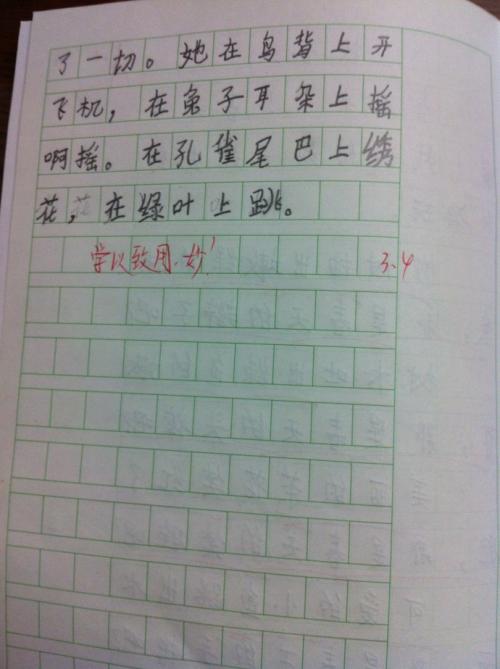 了一切。她在鸟背上开
飞机，在兔子耳朵上摇
啊摇。在孔雀尾巴上绣
花，在绿叶上跳。
学以致用.妙！ 3.4